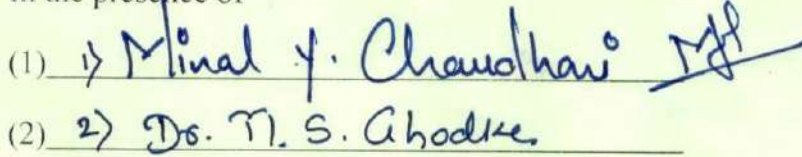 in the presence of
(1) 1) Minal Y. Chaudhari
(2) 2) Dr. M. S. Ghodke